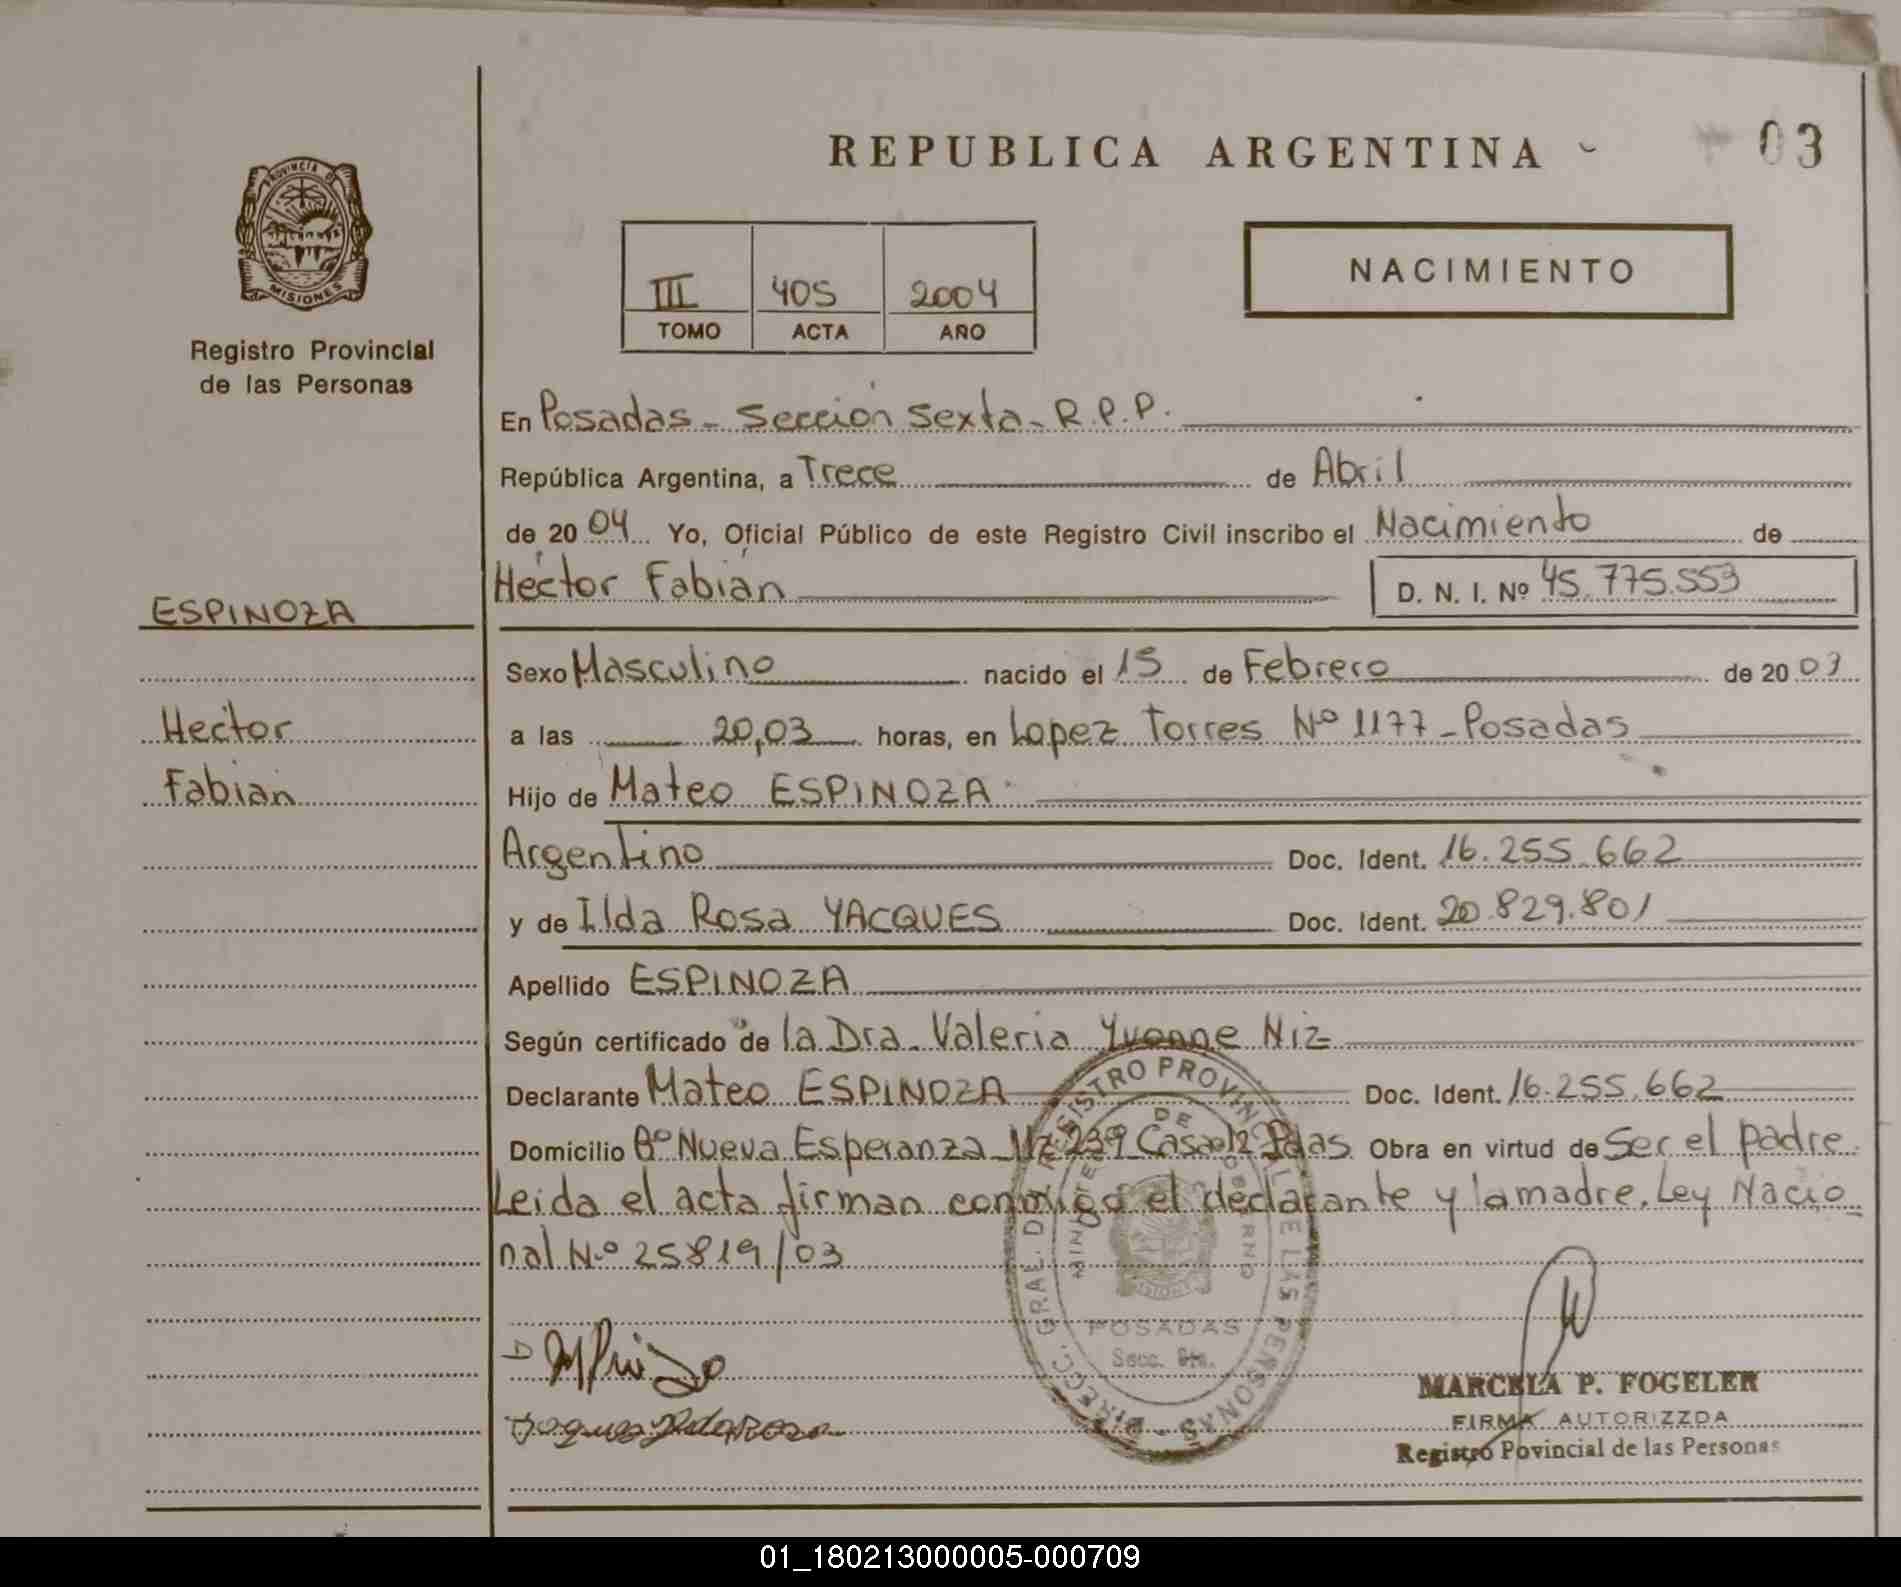 REPUBLICA ARGENTINA
03
PROVINCIA DE
MISIONES
Registro Provincial
de las Personas
III 405 2004
TOMO ACTA AÑO
NACIMIENTO
En Posadas - Sección Sexta - R.P.P.
República Argentina, a Trece de Abril
de 20 04 Yo, Oficial Público de este Registro Civil inscribo el Nacimiento de
Héctor Fabián D. N. I. Nº 45.775.553
ESPINOZA
Sexo Masculino nacido el 15 de Febrero de 20 03
Hector
a las 20,03 horas, en Lopez Torres Nº 1177 - Posadas
Fabian
Hijo de Mateo ESPINOZA
Argentino Doc. Ident. 16.255.662
y de Ilda Rosa YACQUES Doc. Ident. 20.829.801
Apellido ESPINOZA
Según certificado de la Dra. Valeria Yvonne Niz
Declarante Mateo ESPINOZA Doc. Ident. 16.255.662
Domicilio Bº Nueva Esperanza Mz 239 Casa 12 Pdas Obra en virtud de Ser el padre.
Leida el acta firman conmigo el declarante y la madre. Ley Nacio
nal N.º 25819/03
DIRECC. GRAL. DE REGISTRO PROVINCIAL DE LAS PERSONAS
MINISTERIO DE GOBIERNO
POSADAS
Secc. 6ta.
MARCELA P. FOGELER
FIRMA AUTORIZZDA
Registro Povincial de las Personas
01_180213000005-000709